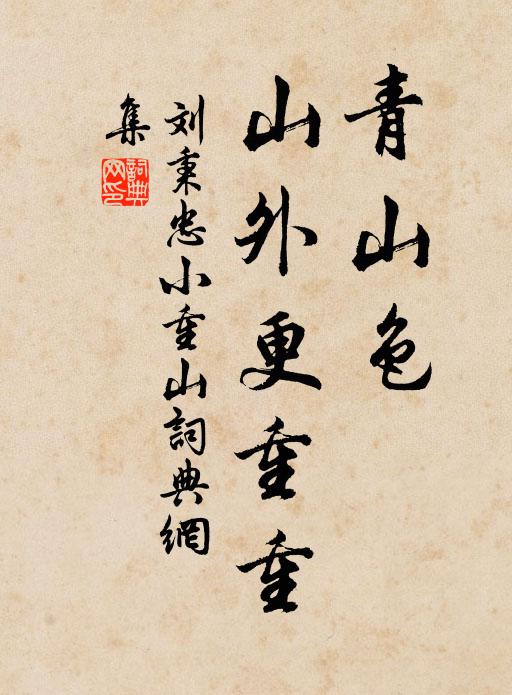 青山色
山外更重重
刘秉忠小重山詞典網
集
詞典
网印